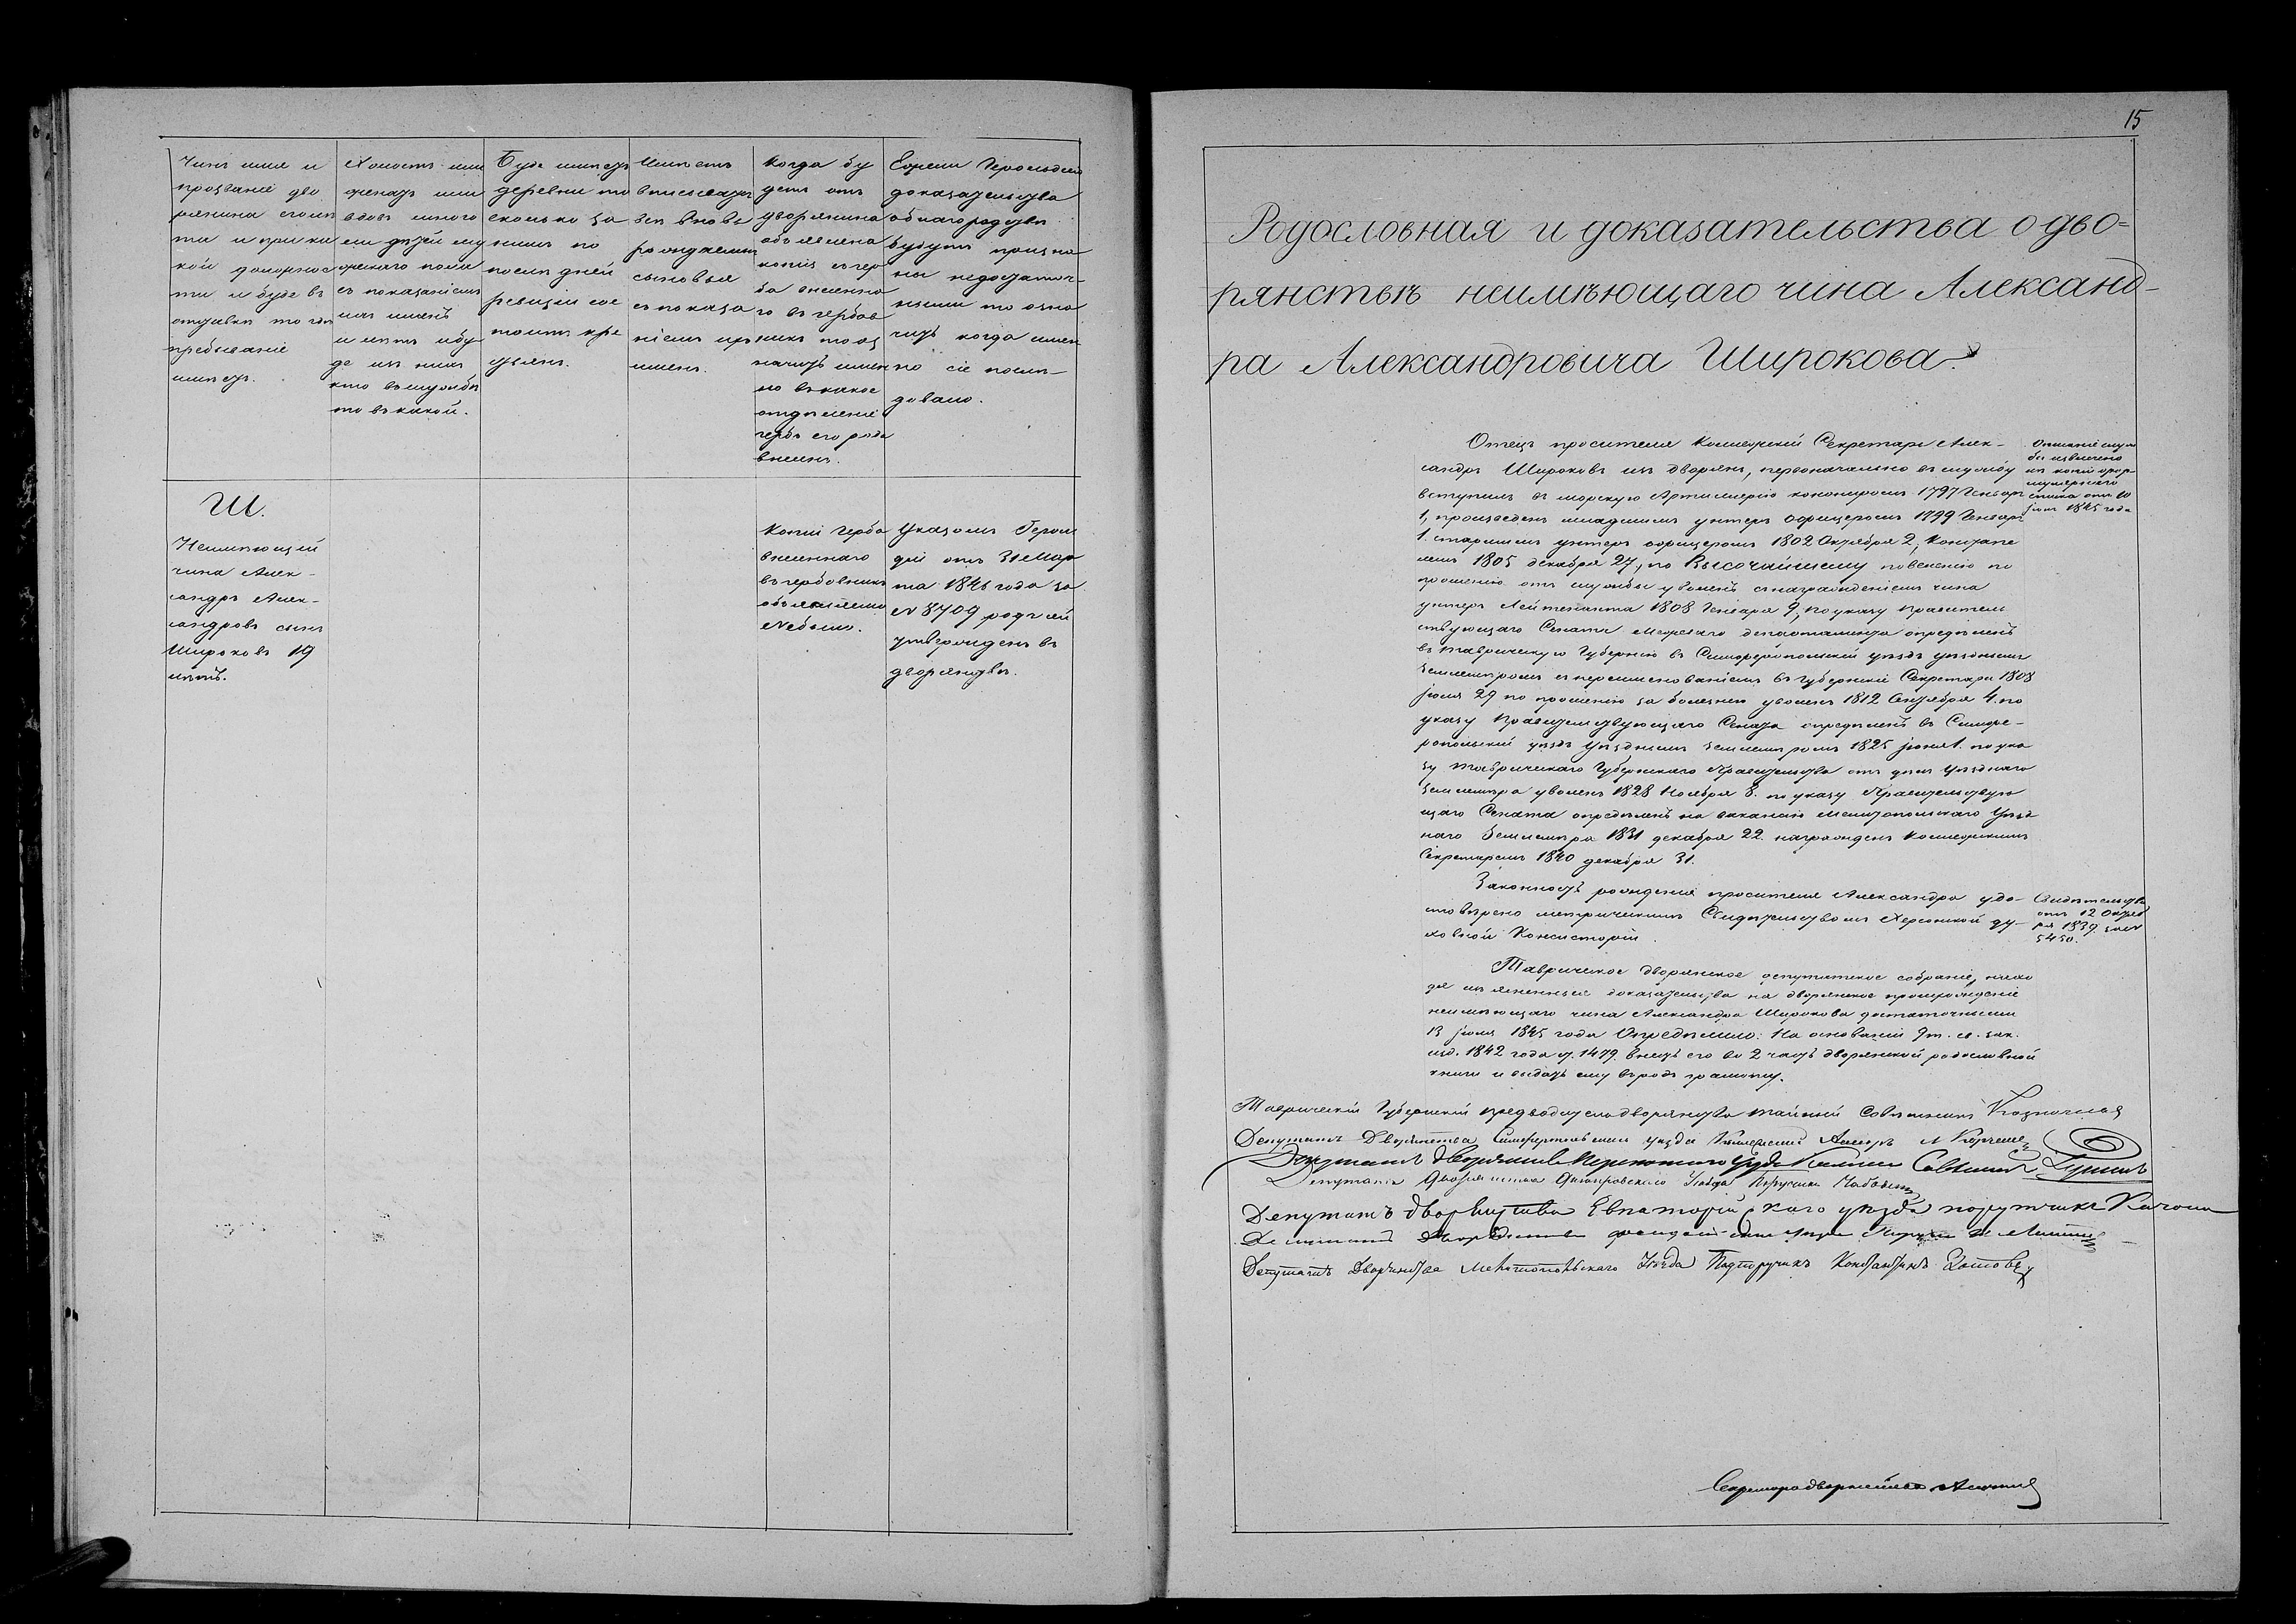 Чинъ имя и
прозваніе дво
рянина слѣта
ми и при ка
кой должнос
ти и буде въ
отставкѣ то гдѣ
пребываніе
имѣетъ.
Холостъ или
женатъ или
вдовъ много
ли дѣтей му
жескаго пола
съ показаніемъ
ихъ именъ
и лѣтъ и бу
де изъ нихъ
кто въ службѣ
то въ какой.
Буде имѣетъ
деревни то
сколько за
нимъ по
послѣдней
ревизіи сос
тоитъ кре
стьянъ.
вписывать
вновь
рождаемы
сыновья
съ показа
ніемъ ихъ
именъ.
Когда бу
детъ отъ
дворянина
объявлена
копія съ гер
ба внесенна
го въ гербов
никъ то оз
начить имен
но въ какое
отдѣленіе
гербъ его рода
внесенъ.
Ежели Герольдіею
доказательства
о благородствѣ
будутъ призна
ны недостаточ-
ными то озна
чить когда имен
но сіе послѣ-
довало.
Ш.
Неимѣющій
чина Алек-
сандръ Алек-
сандровъ сынъ
Широковъ 19
лѣтъ.
Копіи герба
внесеннаго
въ гербовникъ
объявляемо
не было.
Указомъ Героль
діи отъ 31 Мар
та 1846 года за
№ 8709 родъ сей
утвержденъ въ
дворянствѣ.
15
Родословная и доказательства о дво-
рянствѣ неимѣющаго чина Александ-
ра Александровича Широкова.
Отецъ просителя Коллежскій Секретарь Алек-
сандръ Широковъ изъ дворянъ, первоначально въ службу
вступилъ въ морскую Артиллерію канониромъ 1797 Генваря
1, произведенъ младшимъ унтеръ офицеромъ 1799 Генваря
1. старшимъ унтеръ офицеромъ 1802 Октября 2, Констапе
лемъ 1805 декабря 27, по Высочайшему повелѣнію по
прошенію отъ службы уволенъ съ награжденіемъ чина
унтеръ Лейтенанта 1808 Генваря 9, по указу Правитель
ствующаго Сената Межеваго департамента опредѣленъ
въ Таврическую Губернію въ Симферопольскій уѣздъ уѣзднымъ
Землемѣромъ съ переименованіемъ въ Губернскіе Секретари 1808
іюля 29 по прошенію за болѣзнію уволенъ 1812 Сентября 4. по
указу Правительствующаго Сената опредѣленъ въ Симфе-
ропольскій уѣздъ Уѣзднымъ Землемѣромъ 1825 іюня 1. по ука
зу Таврическаго Губернскаго Правительства отъ дѣлъ Уѣзднаго
Землемѣра уволенъ 1828 Ноября 8. по указу Правительствую
щаго Сената опредѣленъ на вакансію Мелитопольскаго Уѣзд
наго Землемѣра 1831 декабря 22 награжденъ Коллежскимъ
Секретаремъ 1840 декабря 31.
Описаніе служ
бы извлечено
изъ копіи фор-
мулярнаго
списка отъ 10
1845 года
Законность рожденія просителя Александра удо-
стовѣрено метрическимъ Свидѣтельствомъ Херсонской ду-
ховной Консисторіи.
Свидѣтельство
отъ 12 Октяб
ря 1839 за №
5450.
Таврическое дворянское депутатское собраніе, нахо
дя изъясненныя доказательства на дворянское происхожденіе
неимѣющаго чина Александра Широкова достаточными
13 іюля 1845 года Опредѣлило: На основаніи 9 т. св. зак.
изд. 1842 года ст. 1479. внесть его во 2 часть дворянской родословной
книги и выдать ему въ родъ грамоту.
Таврическій Губернскій предводитель дворянства тайный Совѣтникъ Казначеевъ
Депутатъ Дворянства Симферопольскаго уѣзда Коллежскій
Депутатъ Дворянства Перекопскаго уѣзда Совѣтникъ
Депутатъ Дворянства Днѣпровскаго Уѣзда Поручикъ
Депутатъ дворянства Евпаторійскаго уѣзда поручикъ
Депутатъ дворянства уѣзда
Депутатъ Дворянства Мелитопольскаго Уѣзда Подпоручикъ Константинъ
Секретарь дворянства